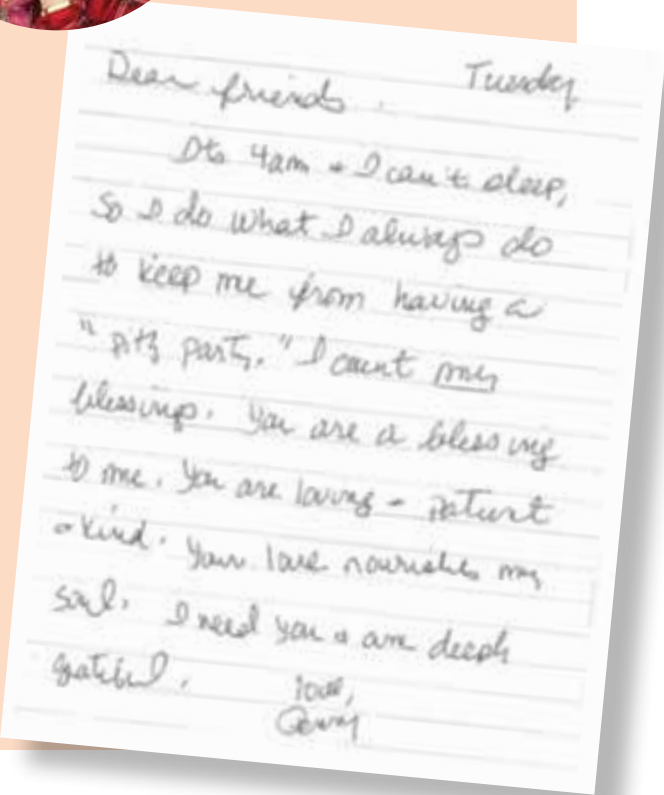 Tuesday
Dear friends.
Its 4am + I can't sleep,
So I do what I always do
to keep me from having a
"pity party." I count my
blessings. You are a blessing
to me. You are loving - patient
+ kind. Your love nourishes my
soul. I need you + am deeply
grateful.
love,